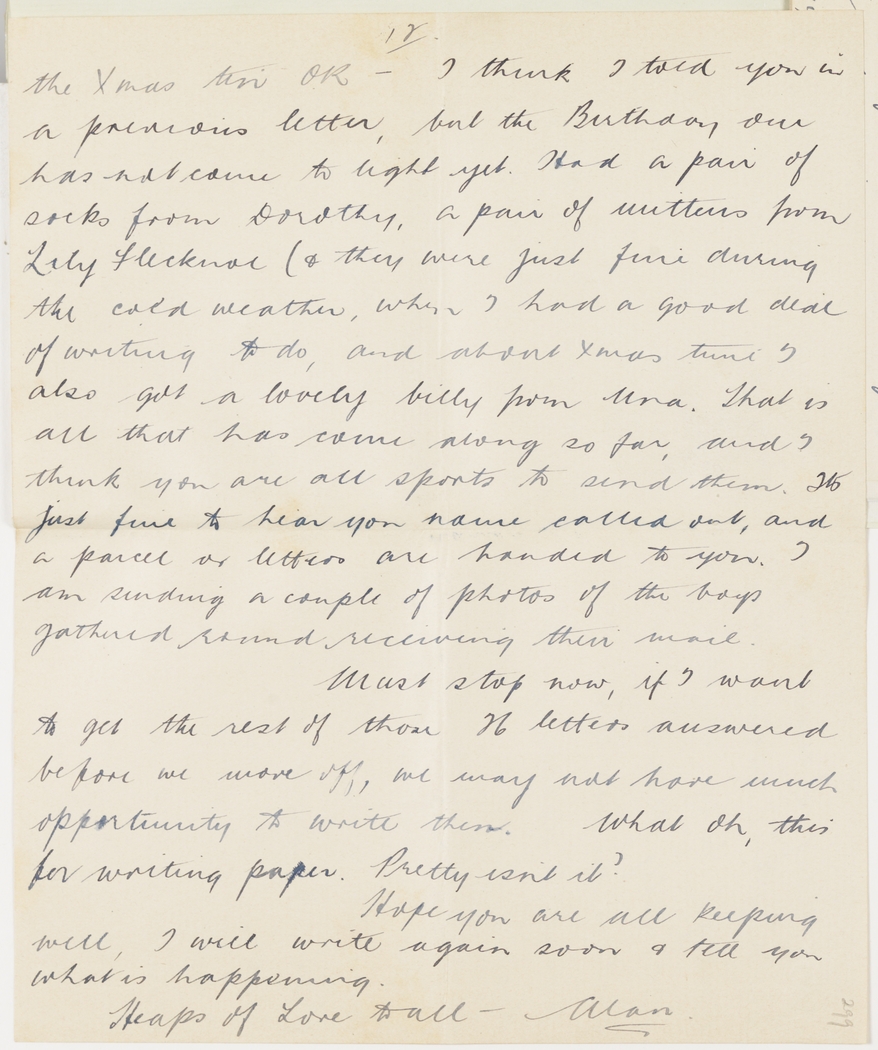 12.
the Xmas tin OK - I think I told you in
a previous letter, but the Birthday one
has not come to light yet. Had a pair of
socks from Dorothy, a pair of mittens from
Lily Flecknoe (& they were just fine during
the cold weather, when I had a good deal
of writing to do, and about Xmas time I
also got a lovely billy from Una. That is
all that has come along so far, and I
think you are all sports to send them. Its
just fine to hear you name called out, and
a parcel or letters are handed to you. I
am sending a couple of photos of the boys
gathered round receiving their mail.
Must stop now, if I want
to get the rest of those 36 letters answered
before we move off, we may not have much
opportunity to write then. What oh, this
for writing paper. Pretty isn't it?
Hope you are all keeping
well, I will write again soon & tell you
what is happening.
Heaps of Love to all - Alan.
299